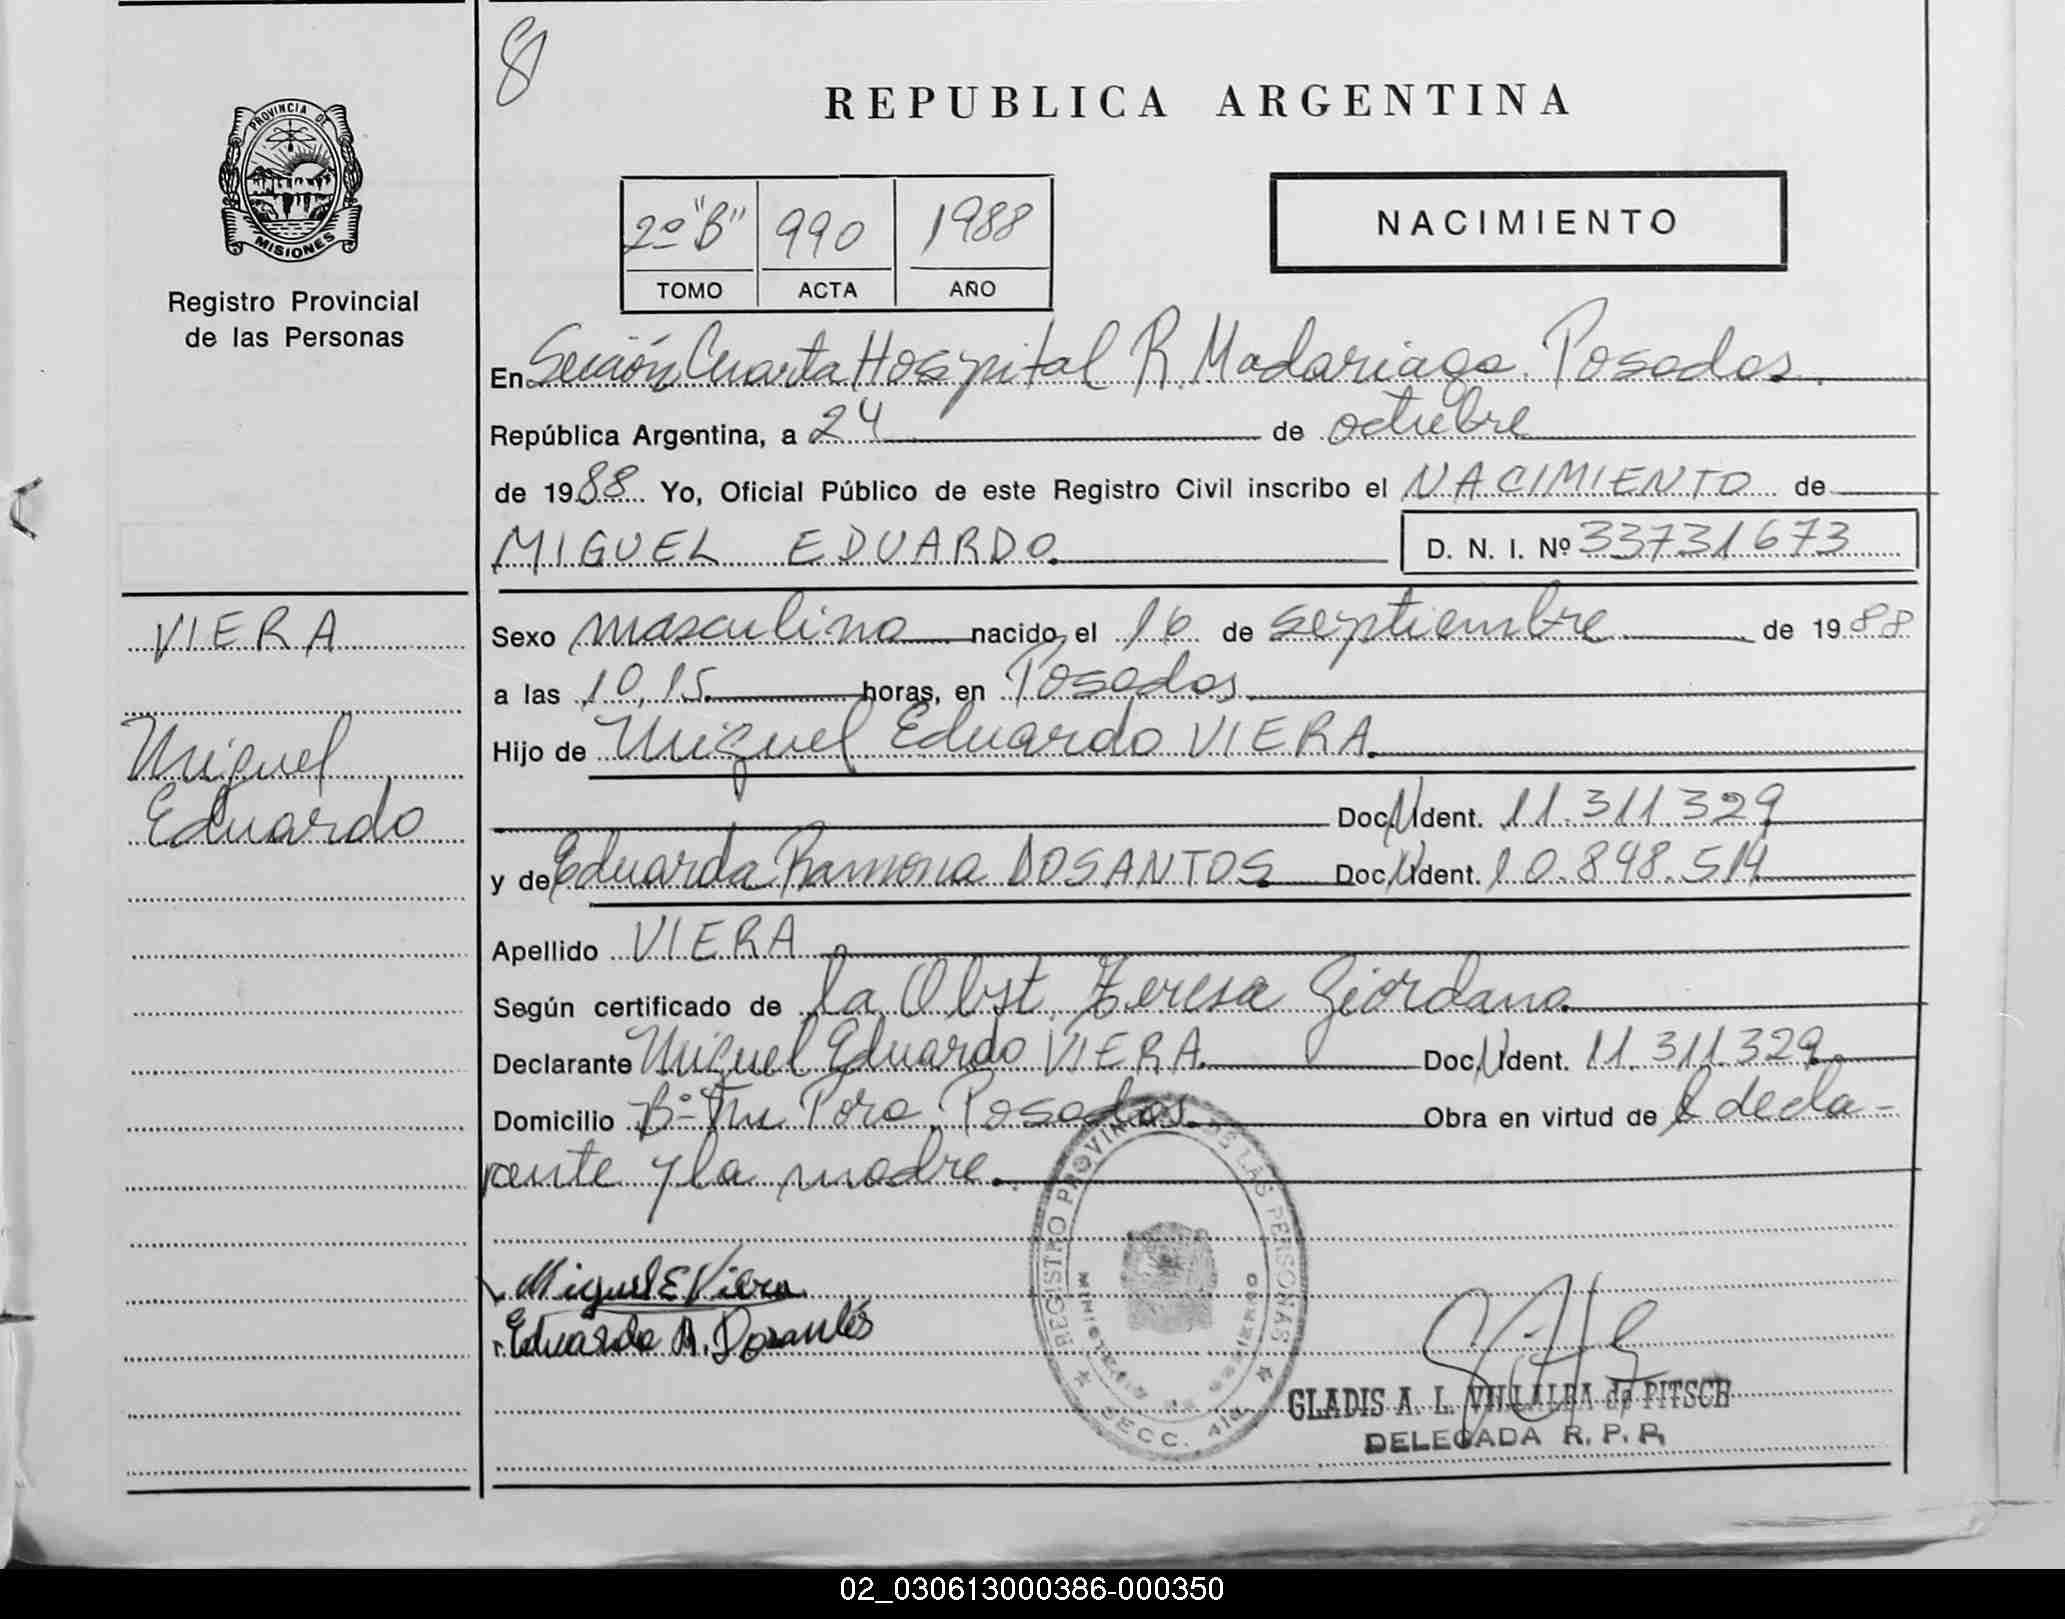 8
PROVINCIA DE
MISIONES
Registro Provincial
de las Personas
REPUBLICA ARGENTINA
2º "B" 990 1988
TOMO ACTA AÑO
NACIMIENTO
En Sección Cuarta Hospital R. Madariaga. Posadas.
República Argentina, a 24 de octubre
de 1988 Yo, Oficial Público de este Registro Civil inscribo el NACIMIENTO de
MIGUEL EDUARDO. D. N. I. Nº 33731673
VIERA
Miguel
Eduardo
Sexo masculino nacido el 16 de septiembre de 1988
a las 10,15 horas, en Posadas.
Hijo de Miguel Eduardo VIERA.
Doc. N Ident. 11.311.329
y de Eduarda Ramona DOSANTOS Doc. N Ident. 10.898.514
Apellido VIERA
Según certificado de la Obst. Teresa Giordano.
Declarante Miguel Eduardo VIERA. Doc. N Ident. 11.311.329.
Domicilio Bº Poro. Posadas. Obra en virtud de l decla-
rante y la madre.
Miguel E Viera
Eduarda R. Dosantos
REGISTRO PROVINCIAL DE LAS PERSONAS
MINISTERIO DE GOBIERNO
SECC. 4ta
GLADIS A. L. VILLALBA de PITSCH
DELEGADA R. P. P.
02_030613000386-000350